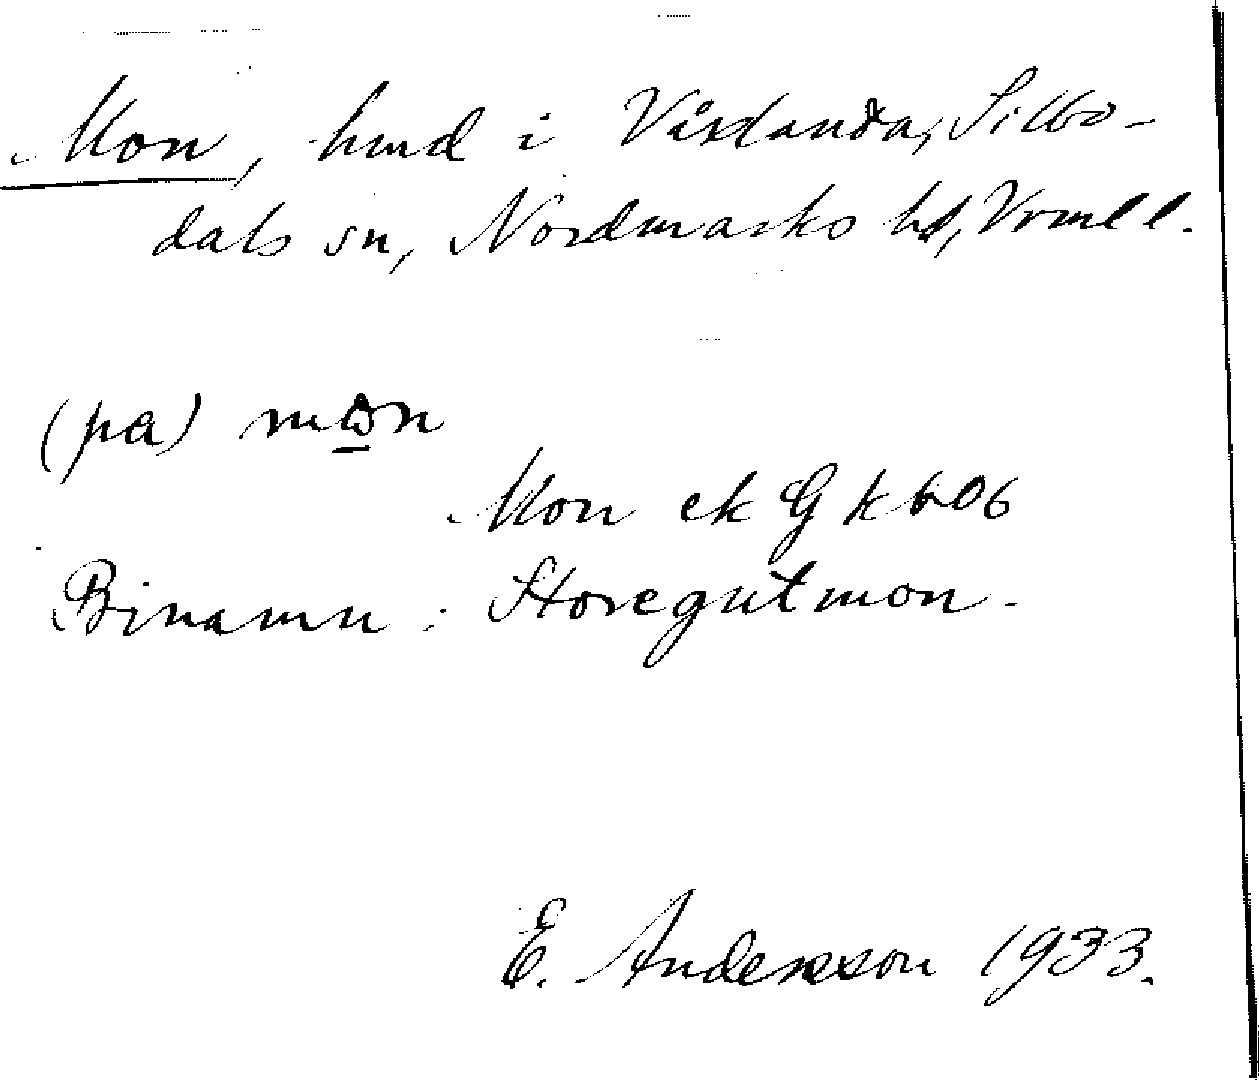 Mon, hmd i Vårdanda, Silbo-
dals sn, Nordmarks hd, Vrml l.
(pa) mon
Mon ek G k b06
Binamn: Storegutmon.
E. Andersson 1933.